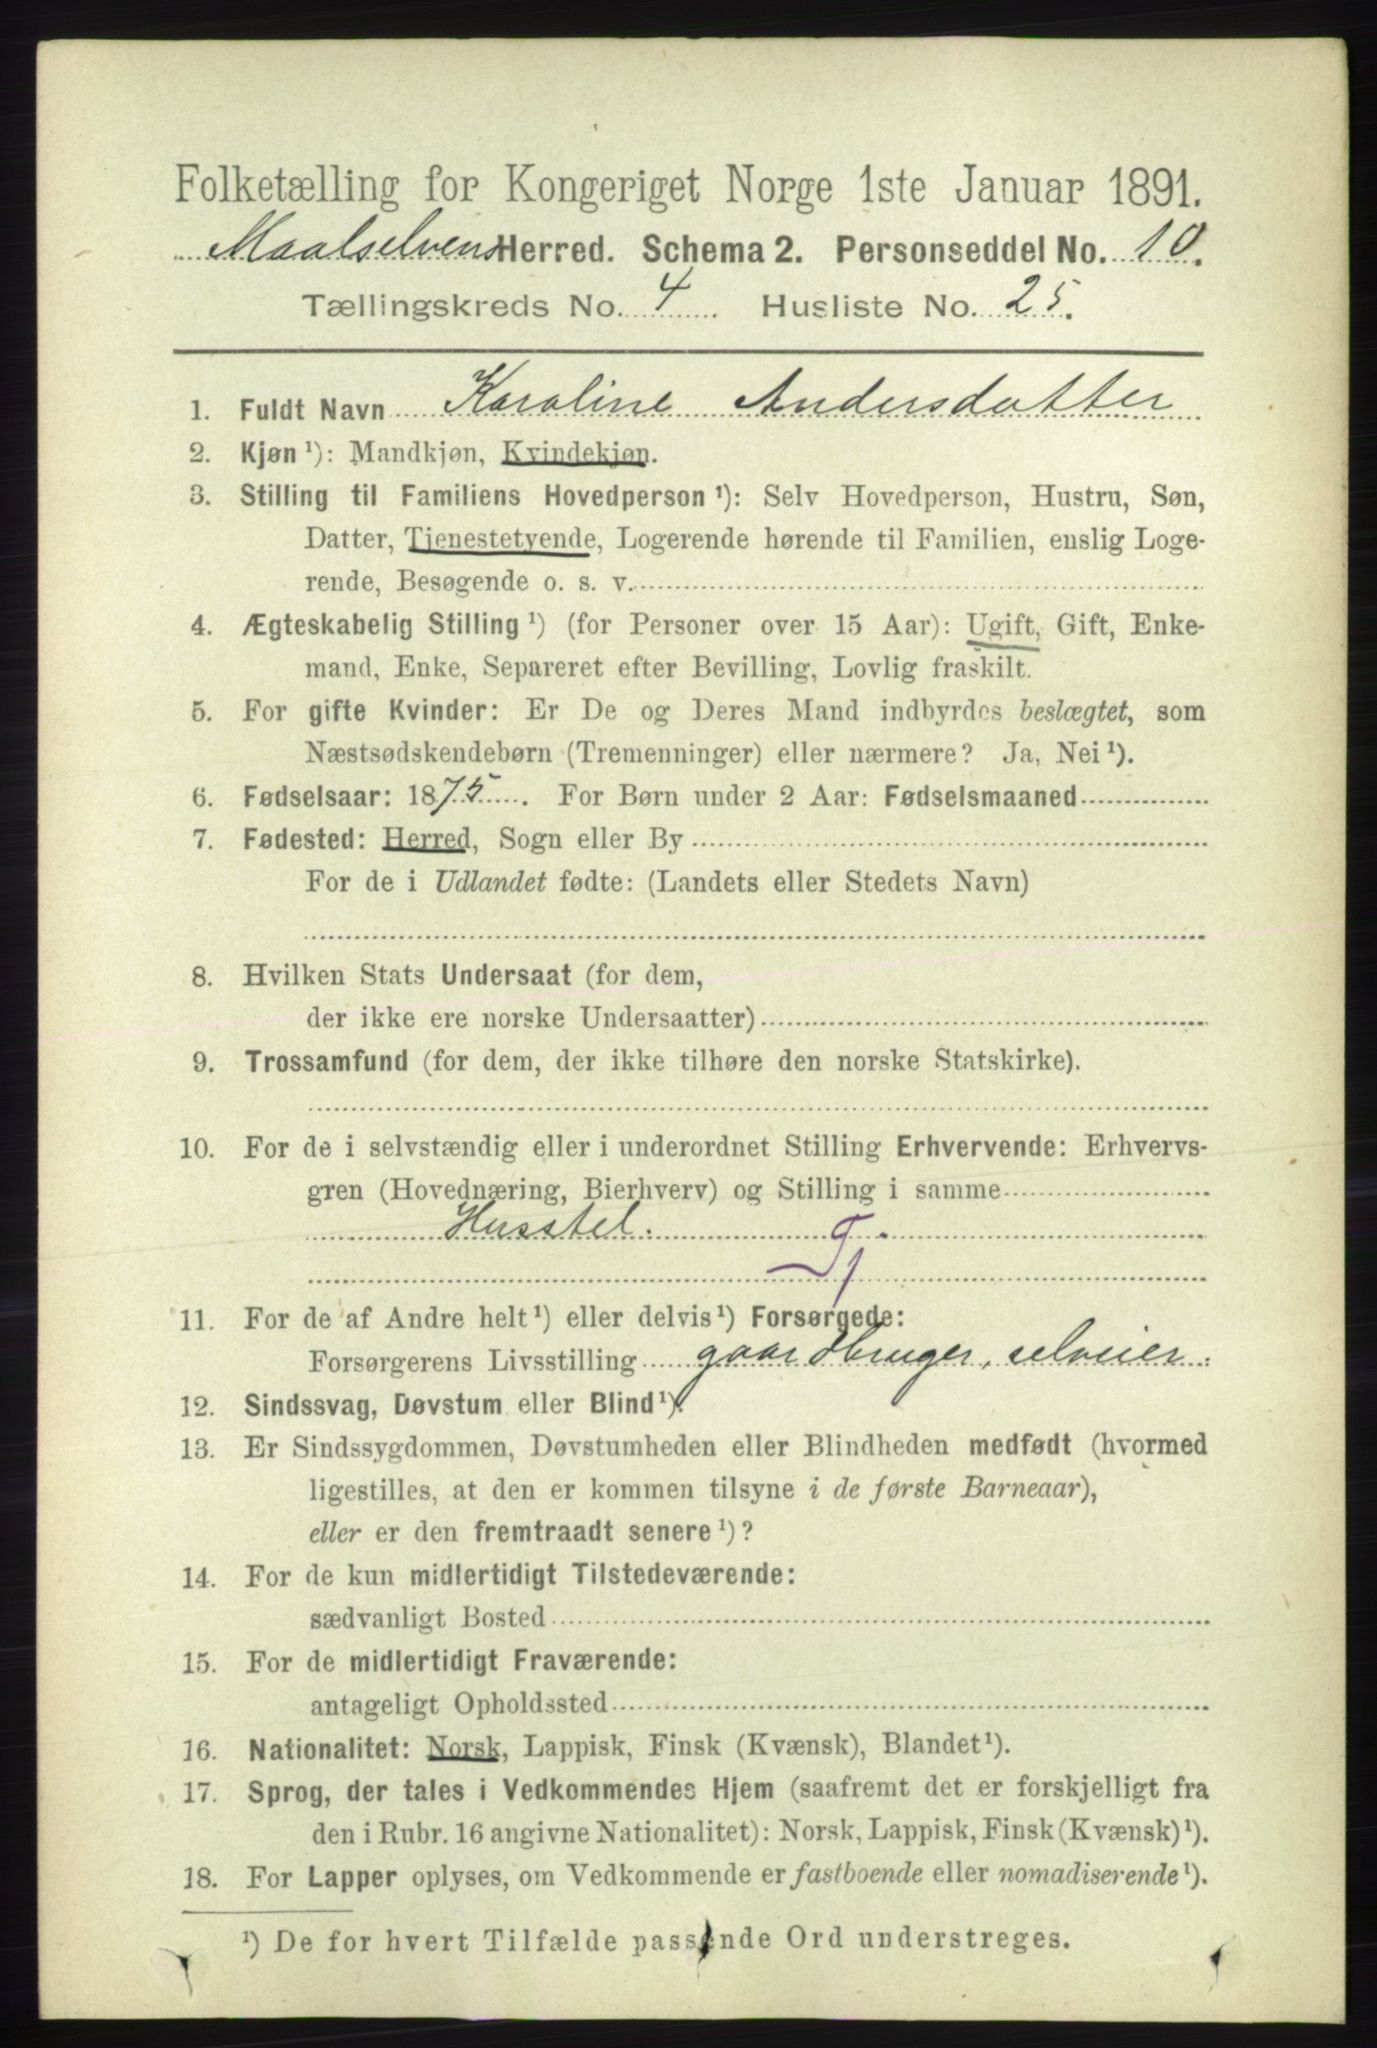 Folketælling for Kongeriget Norge 1ste Januar 1891.
Maalselvens Herred. Schema 2. Personseddel No. 10.
Tællingskreds No. 4 Husliste No. 25.
1. Fuldt Navn Karoline Andersdatter
2. Kjøn ¹): Mandkjøn, Kvindekjøn.
3. Stilling til Familiens Hovedperson ¹): Selv Hovedperson, Hustru, Søn,
Datter, Tjenestetyende, Logerende hørende til Familien, enslig Loge-
rende, Besøgende o. s. v.
4. Ægteskabelig Stilling ¹) (for Personer over 15 Aar): Ugift, Gift, Enke-
mand, Enke, Separeret efter Bevilling, Lovlig fraskilt.
5. For gifte Kvinder: Er De og Deres Mand indbyrdes beslægtet, som
Næstsødskendebørn (Tremenninger) eller nærmere? Ja, Nei ¹).
6. Fødselsaar: 1875. For Børn under 2 Aar: Fødselsmaaned
7. Fødested: Herred, Sogn eller By
For de i Udlandet fødte: (Landets eller Stedets Navn)
8. Hvilken Stats Undersaat (for dem,
der ikke ere norske Undersaatter)
9. Trossamfund (for dem, der ikke tilhøre den norske Statskirke).
10. For de i selvstændig eller i underordnet Stilling Erhvervende: Erhvervs-
gren (Hovednæring, Bierhverv) og Stilling i samme
Husstel. Tj.
11. For de af Andre helt ¹) eller delvis ¹) Forsørgede:
Forsørgerens Livsstilling gaardbruger, selveier.
12. Sindssvag, Døvstum eller Blind ¹).
13. Er Sindssygdommen, Døvstumheden eller Blindheden medfødt (hvormed
ligestilles, at den er kommen tilsyne i de første Barneaar),
eller er den fremtraadt senere ¹)?
14. For de kun midlertidigt Tilstedeværende:
sædvanligt Bosted
15. For de midlertidigt Fraværende:
antageligt Opholdssted
16. Nationalitet: Norsk, Lappisk, Finsk (Kvænsk), Blandet ¹).
17. Sprog, der tales i Vedkommendes Hjem (saafremt det er forskjelligt fra
den i Rubr. 16 angivne Nationalitet): Norsk, Lappisk, Finsk (Kvænsk) ¹).
18. For Lapper oplyses, om Vedkommende er fastboende eller nomadiserende ¹).
¹) De for hvert Tilfælde passende Ord understreges.